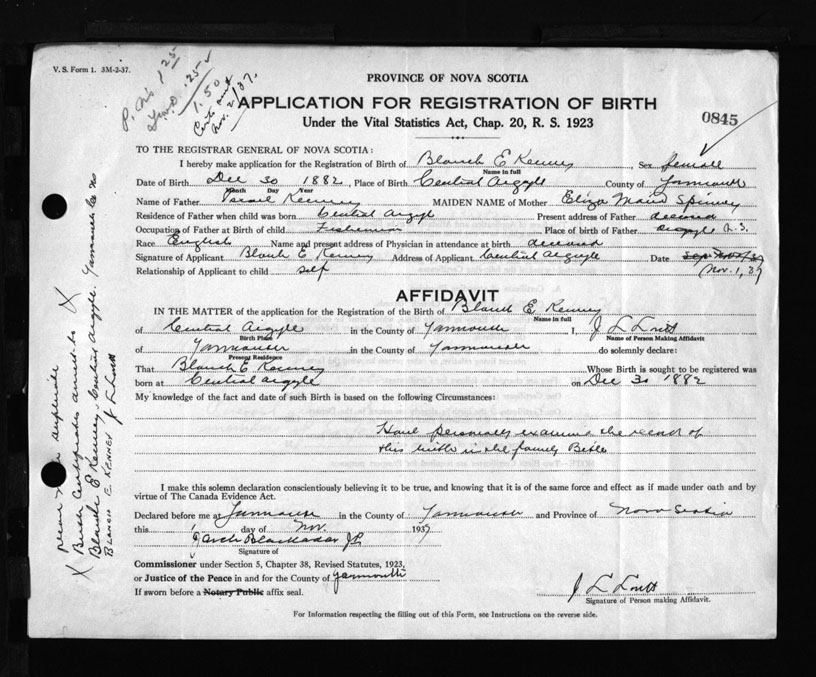 V. S. Form 1. 3M-2-37.
1.50
PROVINCE OF NOVA SCOTIA
APPLICATION FOR REGISTRATION OF BIRTH
0845
Under the Vital Statistics Act, Chap. 20, R. S. 1923
TO THE REGISTRAR GENERAL OF NOVA SCOTIA:
I hereby make application for the Registration of Birth of Blanch E Kenney , Sex female
Name in full
Date of Birth Dec 30 1882 , Place of Birth Central Argyle County of Yarmouth
Month Day Year
Name of Father Israel Kenney MAIDEN NAME of Mother Eliza Maud Spinney
Residence of Father when child was born Central Argyle Present address of Father deceased
Occupation of Father at Birth of child Fisherman Place of birth of Father Argyle N.S.
Race English Name and present address of Physician in attendance at birth deceased
Signature of Applicant Blanch E Kenney Address of Applicant Central Argyle Date
Nov. 1, 37
Relationship of Applicant to child self
AFFIDAVIT
IN THE MATTER of the application for the Registration of the Birth of Blanch E Kenney
Name in full
of Central Argyle in the County of Yarmouth I, J L Lovitt
Birth Place Name of Person Making Affidavit
of Yarmouth in the County of Yarmouth do solemnly declare:
Present Residence
That Blanch E Kenney Whose Birth is sought to be registered was
born at Central Argyle on Dec 30 1882
My knowledge of the fact and date of such Birth is based on the following Circumstances:
Have personally examined the record of
this birth in the family Bible
I make this solemn declaration conscientiously believing it to be true, and knowing that it is of the same force and effect as if made under oath and by
virtue of The Canada Evidence Act.
Declared before me at Yarmouth in the County of Yarmouth and Province of Nova Scotia
this 1 day of Nov. 1937
Arch Blackadar JP
Signature of
Commissioner under Section 5, Chapter 38, Revised Statutes, 1923,
or Justice of the Peace in and for the County of Yarmouth
If sworn before a Notary Public affix seal.
J L Lovitt
Signature of Person making Affidavit.
For Information respecting the filling out of this Form, see Instructions on the reverse side.
Birth Certificates
Blanche E Kenney, Central Argyle, Yarmouth Co NS
BLANCH E. KENNEY J L Lovitt